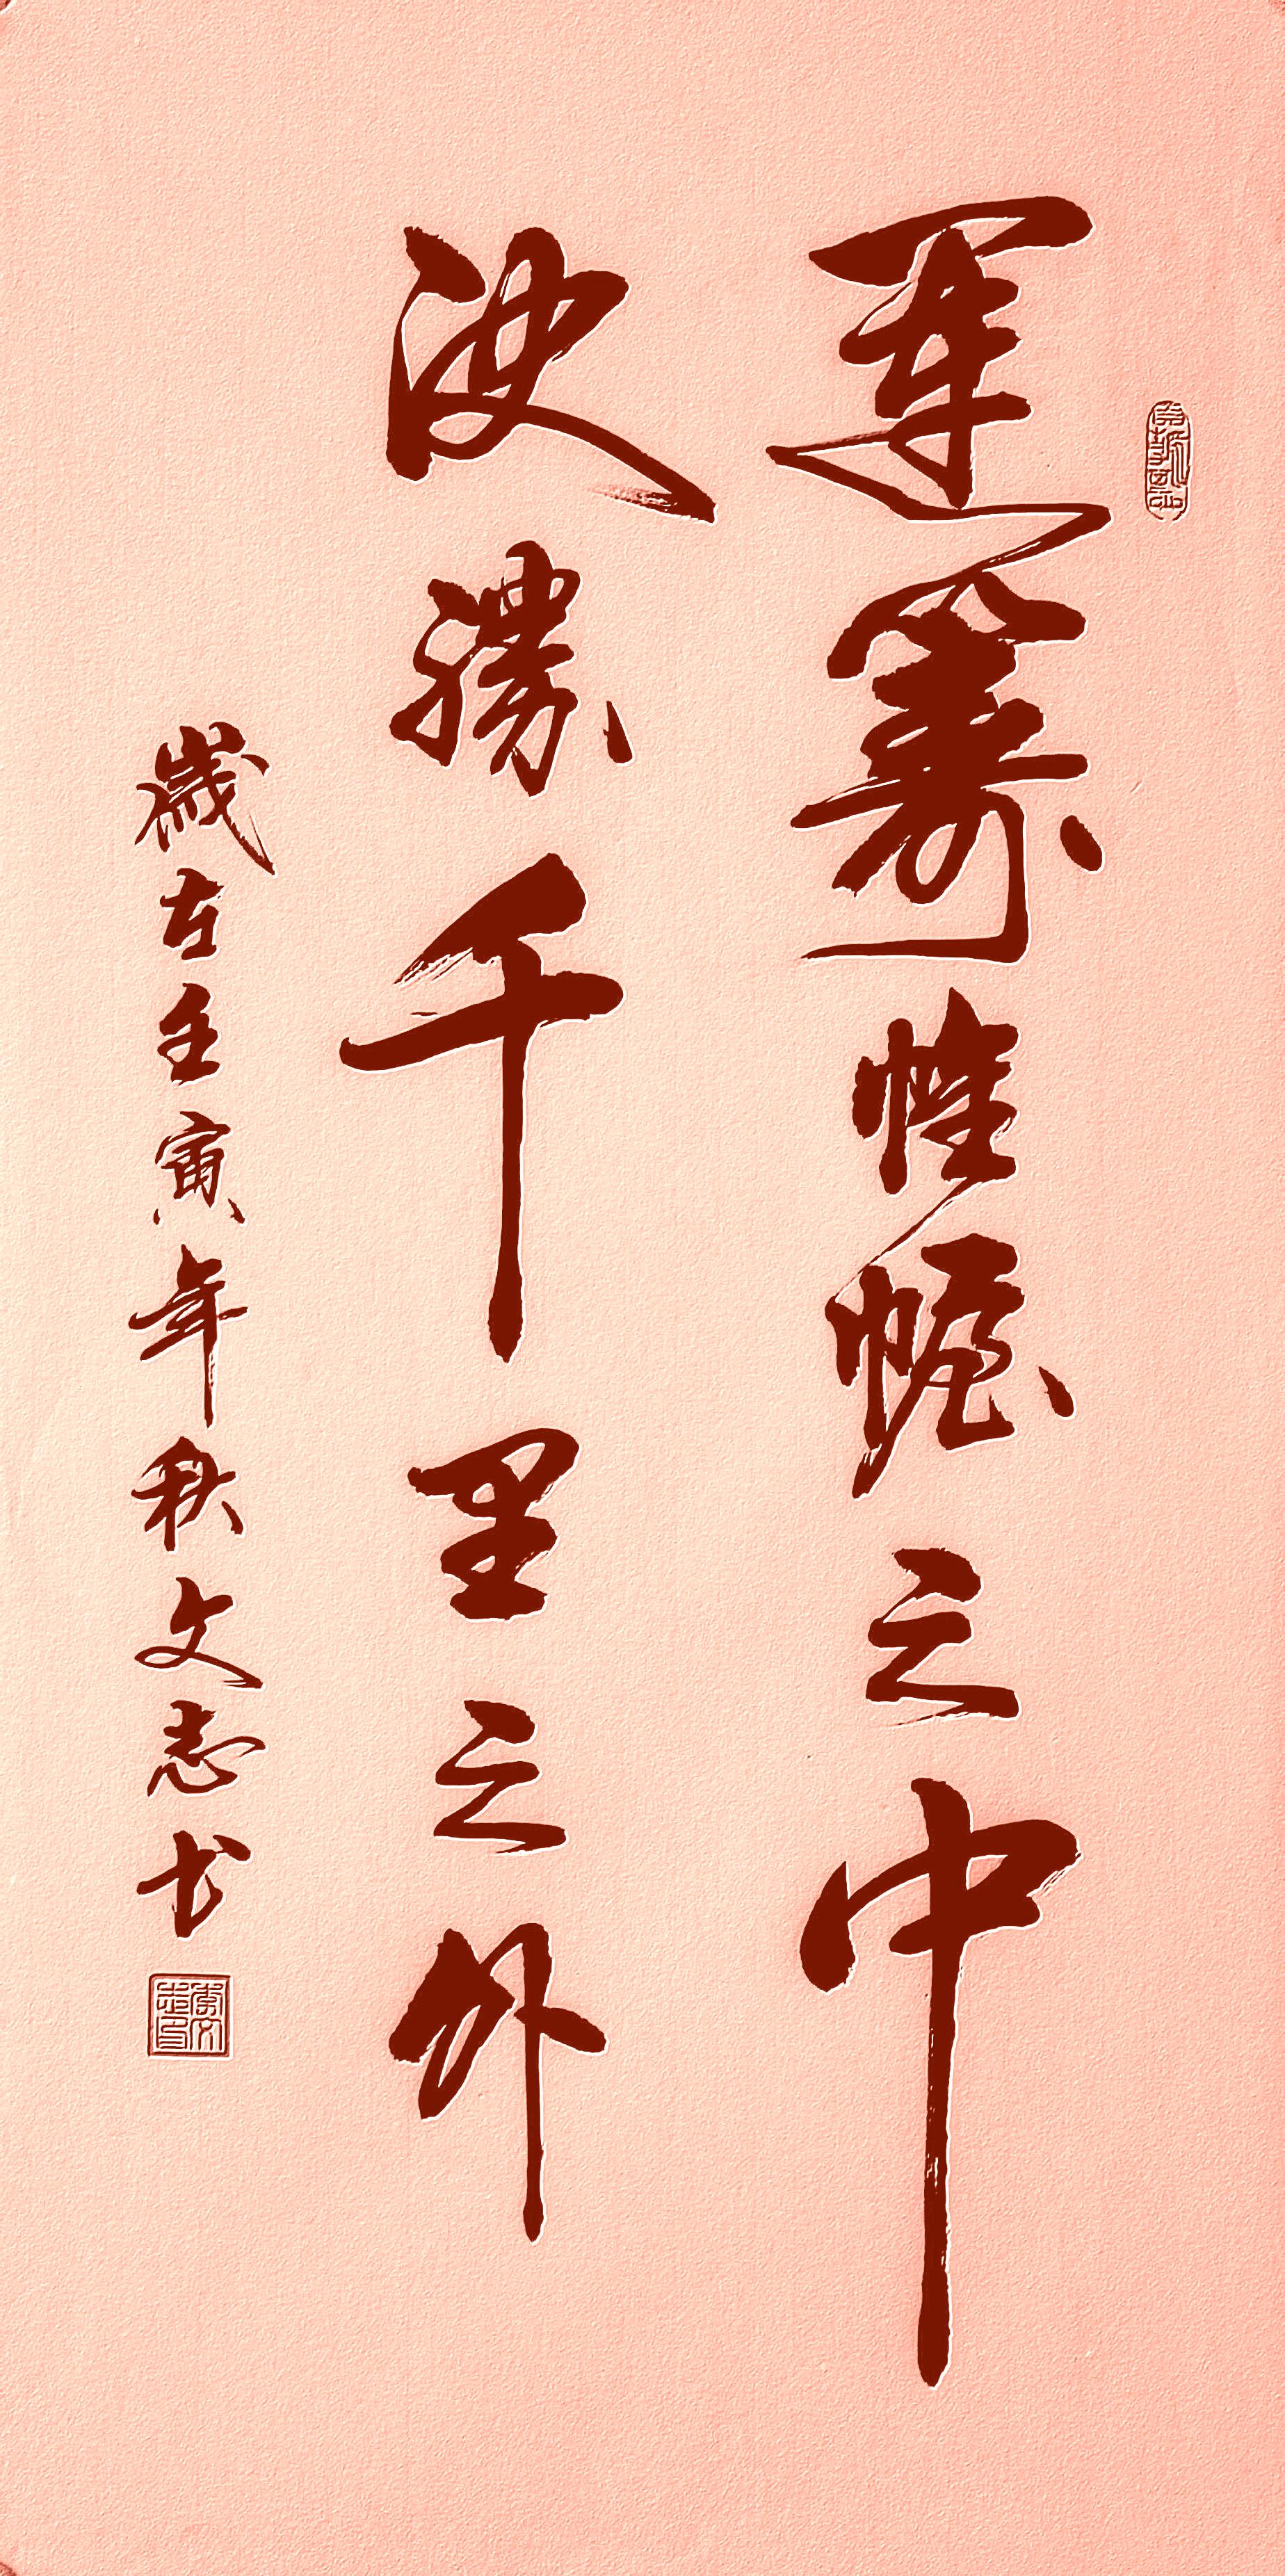 運籌帷幄之中
決勝千里之外
歲在壬寅年秋文志书